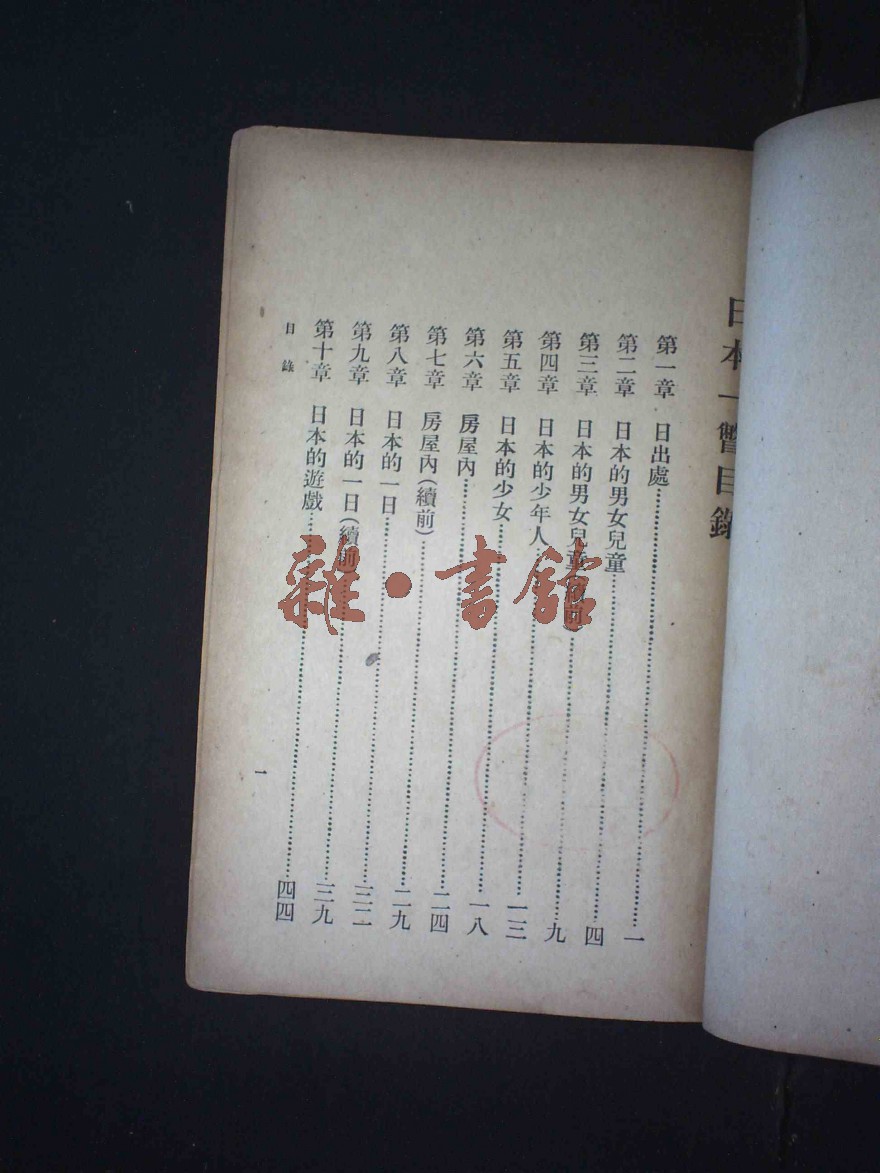 日本一瞥目錄
第一章 日出處……一
第二章 日本的男女兒童……四
第三章 日本的男女兒童(續前)……九
第四章 日本的少年人……一三
第五章 日本的少女……一八
第六章 房屋內……二四
第七章 房屋內(續前)……二九
第八章 日本的一日……三二
第九章 日本的一日(續前)……三九
第十章 日本的遊戲……四四
目錄 一
雜·書館